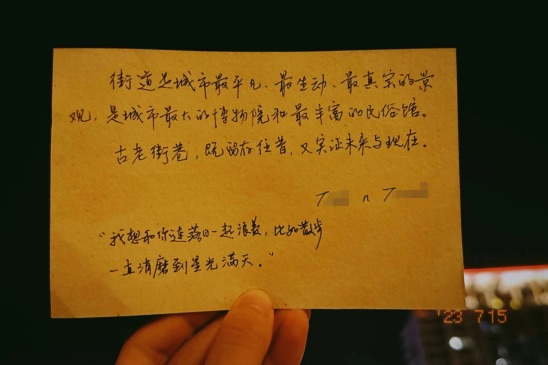 街道是城市最平凡、最生动、最真实的景
观，是城市最大的博物院和最丰富的民俗馆。
古老街巷，既留存往昔，又实证未来与现在。
“我想和你连落日一起浪费，比如散步
一直消磨到星光满天。”
'23 7 15